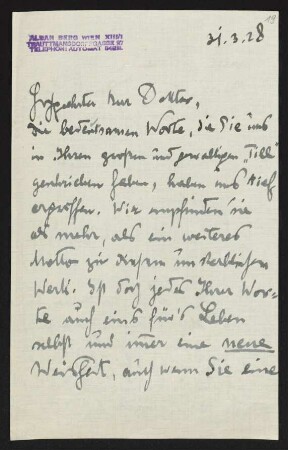 ALBAN BERG WIEN XIII/1
TRAUTTMANSDORFFGASSE 27
TELEPHON: AUTOMAT
31.3.28
19
Doktor,
die bedeutsamen Worte, die Sie uns
in Ihren großen und gewaltigen „Till"
geschrieben haben, haben uns tief
ergriffen. Wir empfinden sie
als mehr, als ein weiteres
Motto zu diesem unsterblichen
Werk. Ist doch jedes Ihrer Wor-
te auch eins für's Leben
selbst und immer eine neue
Weisheit, auch wenn Sie eine